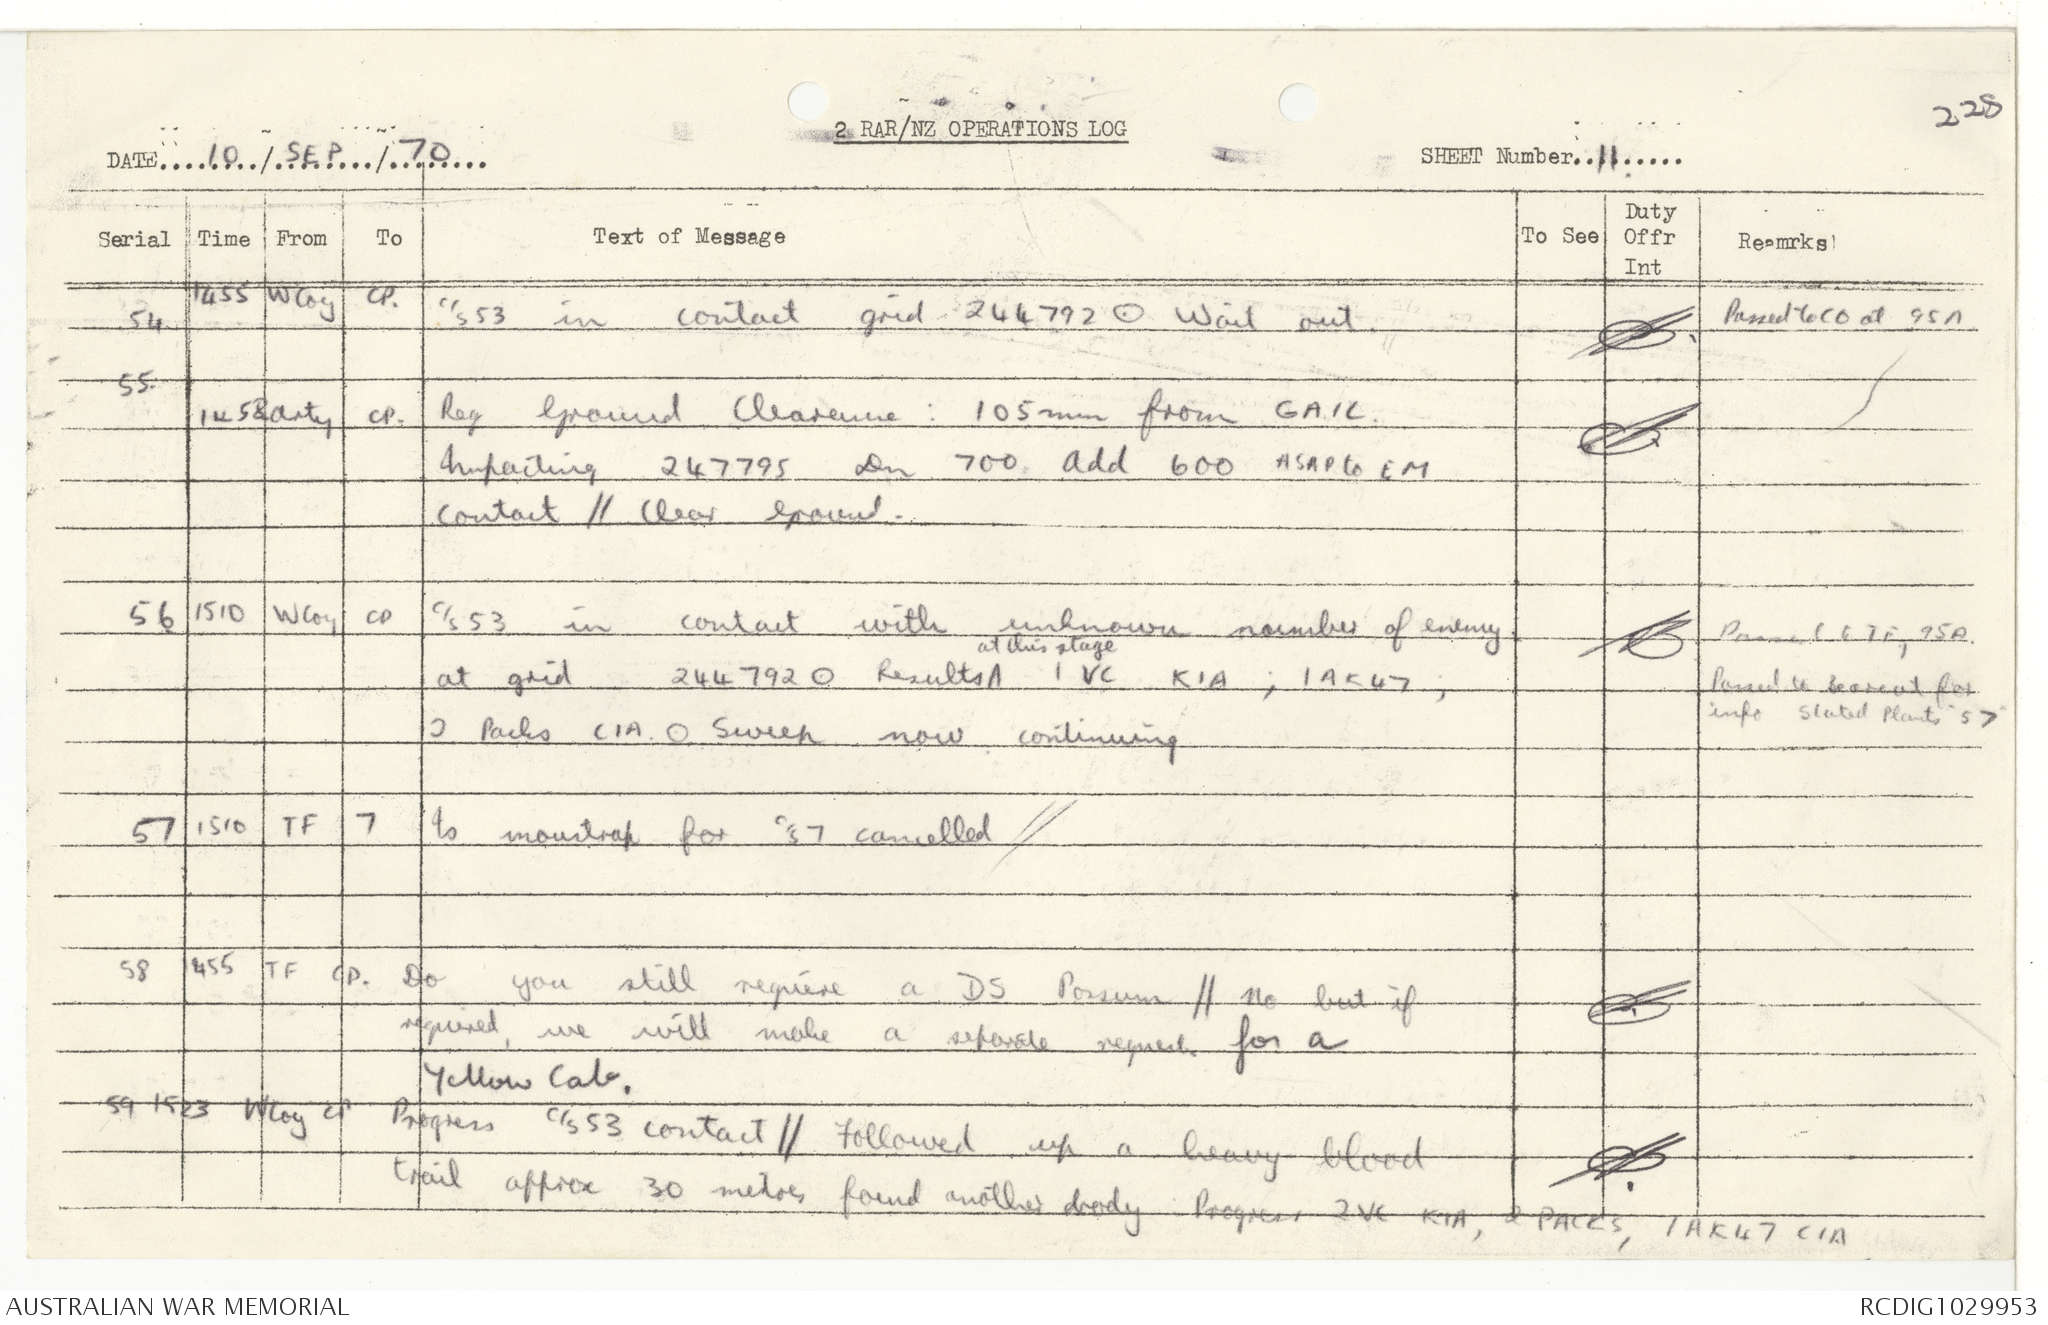 228
2 RAR/NZ OPERATIONS LOG
DATE....10..../.SEP..../.70.....
SHEET Number..11.....
Serial Time From To Text of Message To See Duty Offr Int Reamrks
54 1455 WCoy CP. C/S 53 in contact grid 244792 ⊙ Wait out. Passed to CO at 95A
55 1458 Arty CP. Req Ground Clearence: 105mm from GAIL.
Impacting 247795 Dn 700. Add 600 ASAP to EM
contact // Clear Ground.
56 1510 WCoy CP C/S 53 in contact with unknown number of enemy Passed to TF, 95A.
at this stage
at grid 244792 ⊙ Results 1 VC KIA; 1 AK47; Passed to for
2 Packs CIA. ⊙ Sweep now continuing info Stated Plants "57"
57 1510 TF 7 Is moustrap for C/S 7 cancelled //
58 1455 TF CP. Do you still require a DS Possum // No but if
required, we will make a separate request for a
Yellow Cab.
59 1523 WCoy CP Progress C/S 53 contact // Followed up a heavy blood
trail approx 30 metres found another body. Progress 2 VC KIA, 2 PACKS, 1 AK47 CIA
AUSTRALIAN WAR MEMORIAL
RCDIG1029953